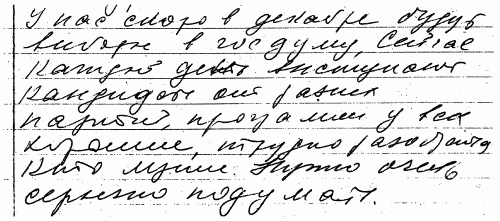 У нас скоро в декабре будут
выборы в госдуму, Сейчас
каждый день выступают
кандидаты от разных
партий, программы у всех
хорошие, трудно разобраться
кто лучше. Нужно очень
серьезно подумать.